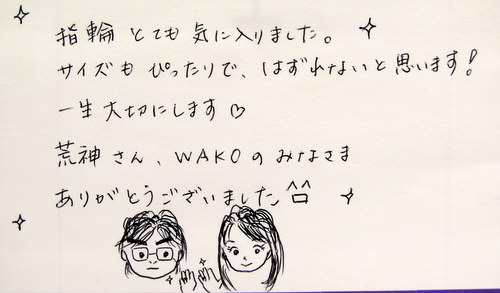 指輪とても気に入りました。
サイズもぴったりで、はずれないと思います!
一生大切にします♡
荒神さん、WAKOのみなさま
ありがとうございました^^